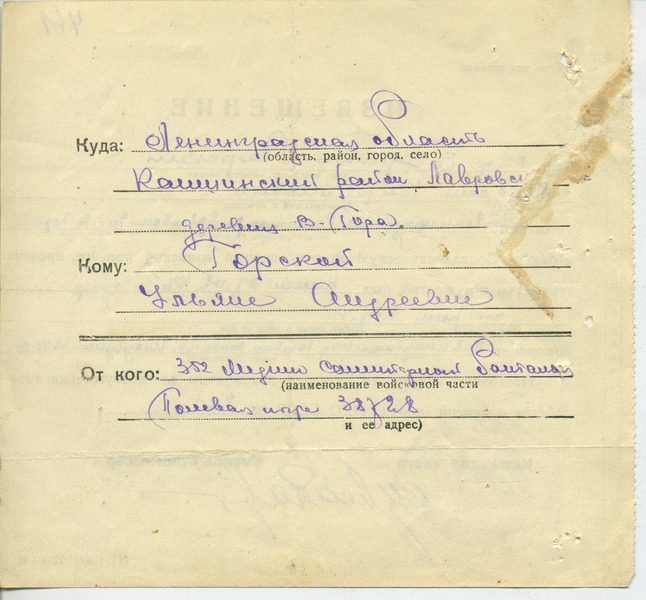 Куда: Ленинградская область
(область, район, город, село)
район Лавровск
деревня В-Гора
Кому: Горской
Ульяне Андреевне
От кого: 352 Медико Санитарный Батальон
(наименование войсковой части
Полевая почта 38728
и ее адрес)